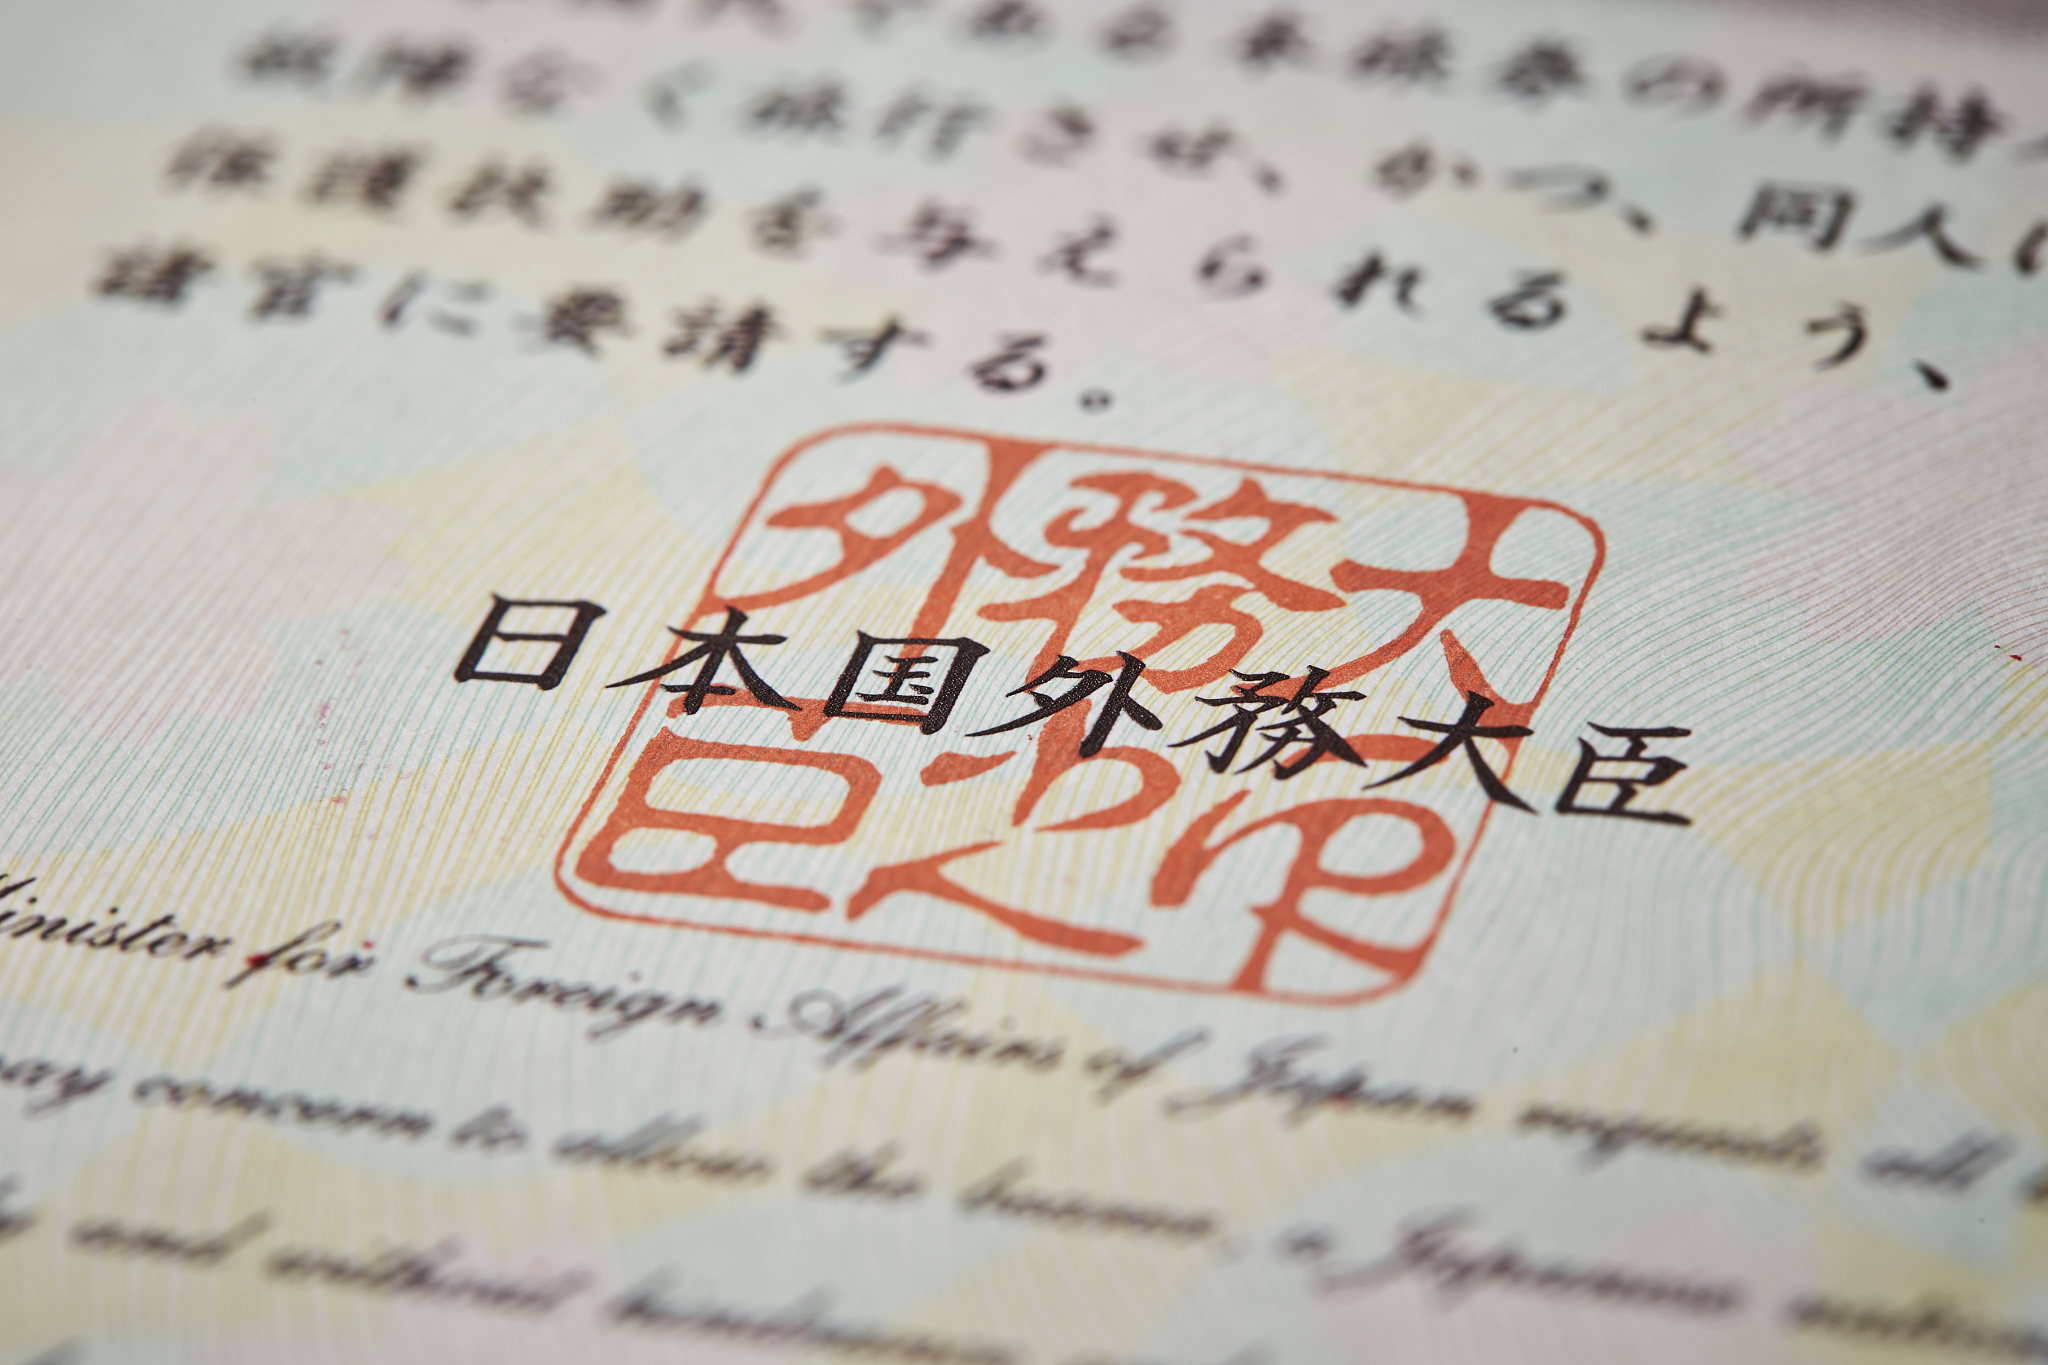 である本旅券の所持人
故障なく旅行させ、かつ、同人に
保護扶助を与えられるよう、
諸官に要請する。
外務大
日本国外務大臣
Minister for Foreign Affairs of Japan requests all
may concern to allow the bearer, a Japanese national
and without hindrance